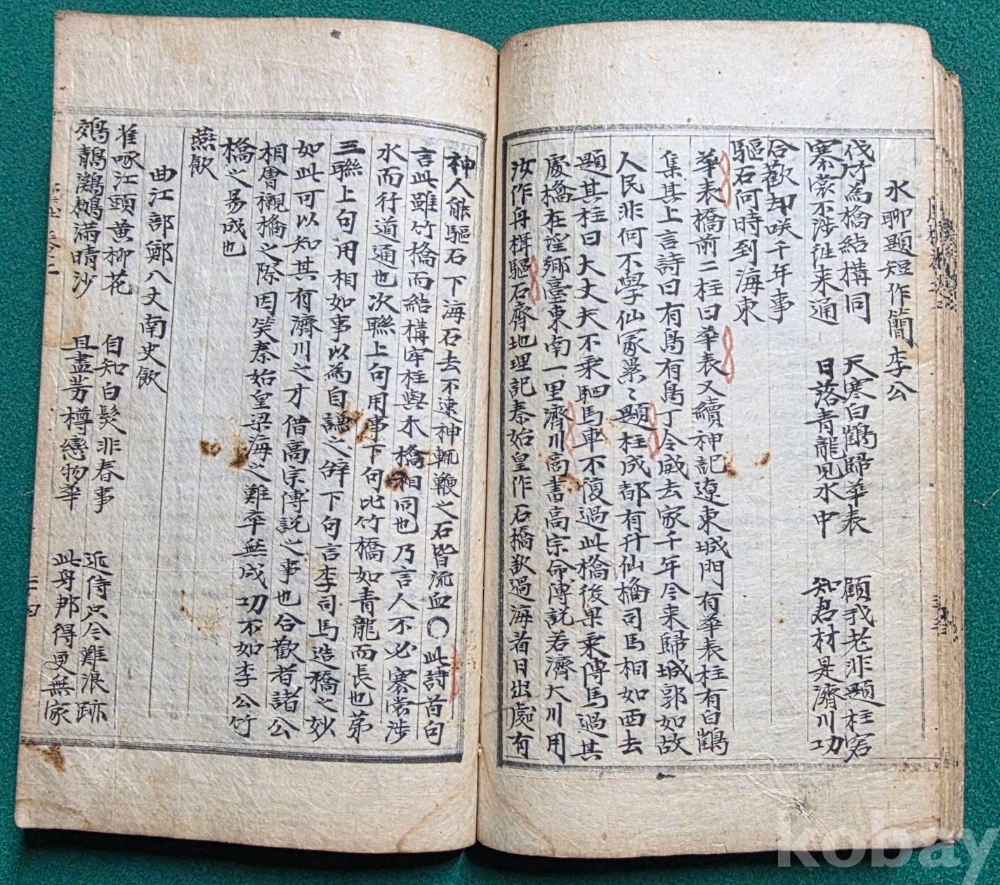 水聊題短作簡李公
伐竹為橋結構同 天寒白鶴歸華表 顧我老非題柱客
褰裳不涉徃来通 日落青龍見水中 知君材是濟川功
合歡却咲千年事
驅石何時到海東
華表橋前二柱曰華表又續神記遼東城門有華表柱有白鶴
集其上言詩曰有鳥有鳥丁令威去家千年今来歸城郭如故
人民非何不學仙冢累〻題柱成都有升仙橋司馬相如西去
題其柱曰大丈夫不乗駟馬車不復過此橋後果乗傳馬過其
處橋在望鄉臺東南一里濟川高書高宗命傅説若濟大川用
汝作舟楫驅石齊地理記秦始皇作石橋欲過海着日出處有
神人能驅石下海石去不速神輒鞭之石皆流血〇此詩首句
言此雖竹橋而結構牢柱與木橋相同也乃言人不必褰裳涉
水而行道通也次聯上句用事下句比竹橋如青龍而長也弟
三聯上句用相如事以為自謙之辭下句言李司馬造橋之妙
如此可以知其有濟川之才借高宗傅説之事也合歡者諸公
相會襯橋之際因笑秦始皇梁海之難卒無成功不如李公竹
橋之易成也
燕飲
曲江部鄭八丈南史飲
雀啄江頭黄柳花 自知白髮非春事 近侍只今難浪跡
鵁鶄鸂鶒滿晴沙 且盡芳樽戀物華 此身那得更無家
三四
kobay